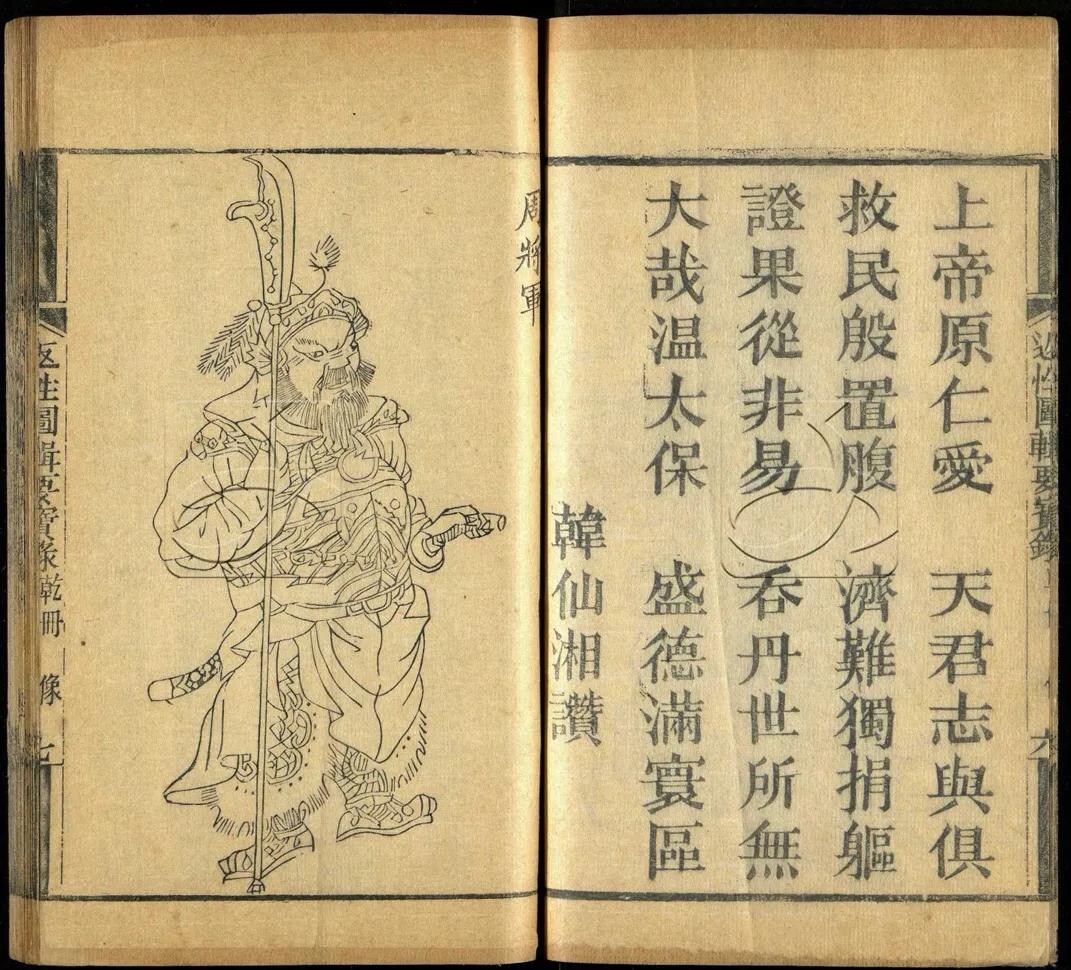 上帝原仁愛 天君志與俱
救民殷置腹 濟難獨捐軀
證果從非易 吞丹世所無
大哉温太保 盛德滿寰區
韓仙湘讚
周將軍
返性圖輯要寶錄乾冊 像 七